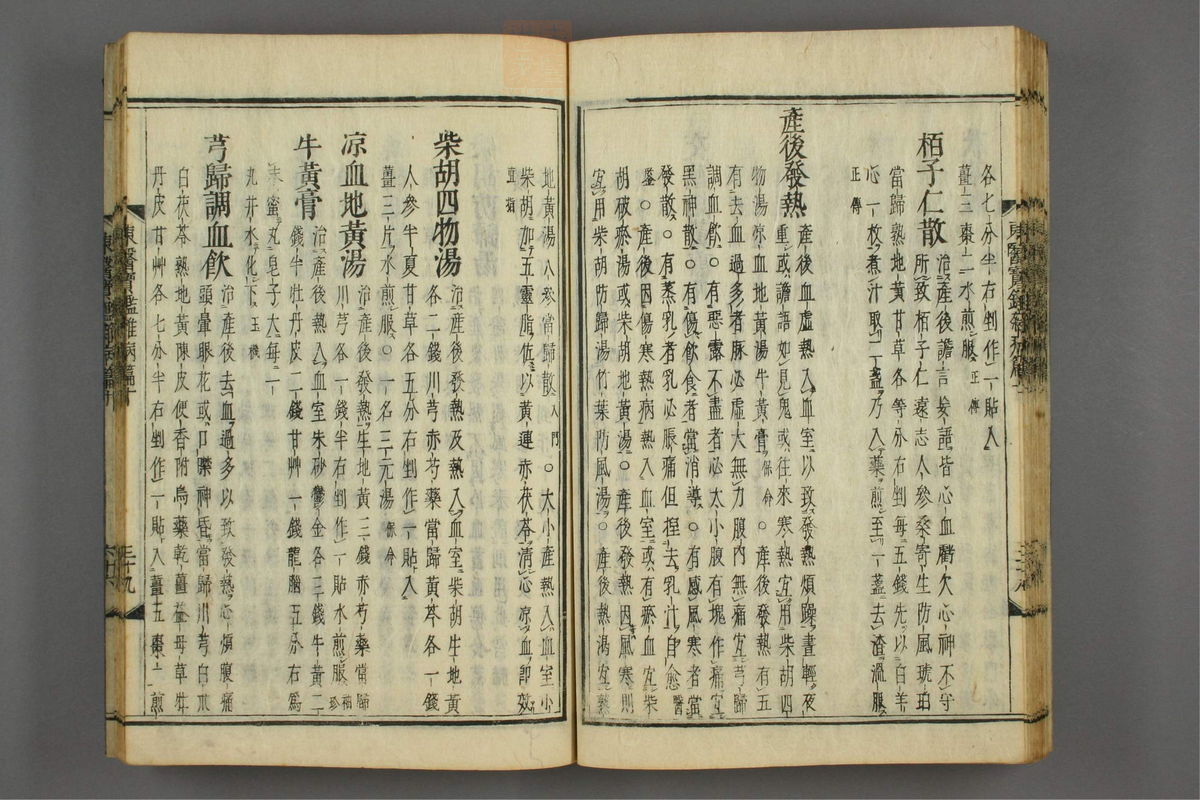 各七分半右剉作一貼入
薑三棗二水煎服正傳
栢子仁散治産後譫言妄語皆心血虧欠心神不守
所致栢子仁遠志人參桑寄生防風琥珀
當歸熟地黄甘草各等分右剉每五錢先以白羊
心一枚煮汁取二盞乃入藥煎至一盞去渣溫服
正傳
産後發熱産後血虛熱入血室以致發熱煩躁晝輕夜
重或譫語如見鬼或往來寒熱宜用柴胡四
物湯涼血地黄湯牛黄膏保命○産後發熱有五
有去血過多者脉必虛大無力腹内無痛宜芎歸
調血飲○有惡露不盡者必大小腹有塊作痛宜
黑神散○有傷飲食者當消導○有感風寒者當
發散○有蒸乳者乳必脹痛但捏去乳汁自愈醫
鑒○産後因傷寒熱病熱入血室或有瘀血宜柴
胡破瘀湯或柴胡地黄湯○産後發熱因風寒則
宜用柴胡防歸湯竹葉防風湯○産後熱瀉宜熟
地黄湯八珍當歸散入門○大小産熱入血室小
柴胡加五靈脂佐以黄連赤茯苓清心涼血卽效
直指
柴胡四物湯治産後發熱及熱入血室柴胡生地黄
各二錢川芎赤芍藥當歸黄芩各一錢
人參半夏甘草各五分右剉作一貼入
薑三片水煎服○一名三元湯保命
凉血地黄湯治産後發熱生地黄三錢赤芍藥當歸
川芎各一錢半右剉作一貼水煎服袖珍
牛黄膏治産後熱入血室朱砂鬱金各三錢牛黄二
錢半牡丹皮二錢甘艸一錢龍腦五分右爲
末蜜丸皂子大每一
丸井水化下玉機
芎歸調血飲治産後去血過多以致發熱心煩腹痛
頭暈眼花或口噤神昏當歸川芎白朮
白茯苓熟地黄陳皮便香附烏藥乾薑益母草牡
丹皮甘艸各七分半右剉作一貼入薑五棗二煎
東醫寶鑑雜病篇十
三十九